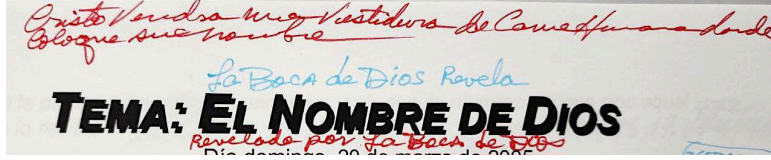 Cristo Vendra una Vestidura de Carne Humana donde
Coloque su nombre
La Boca de Dios Revela
TEMA: EL NOMBRE DE DIOS
Revelado por La Boca de DIOS
Día domingo, 20 de marzo de 2005